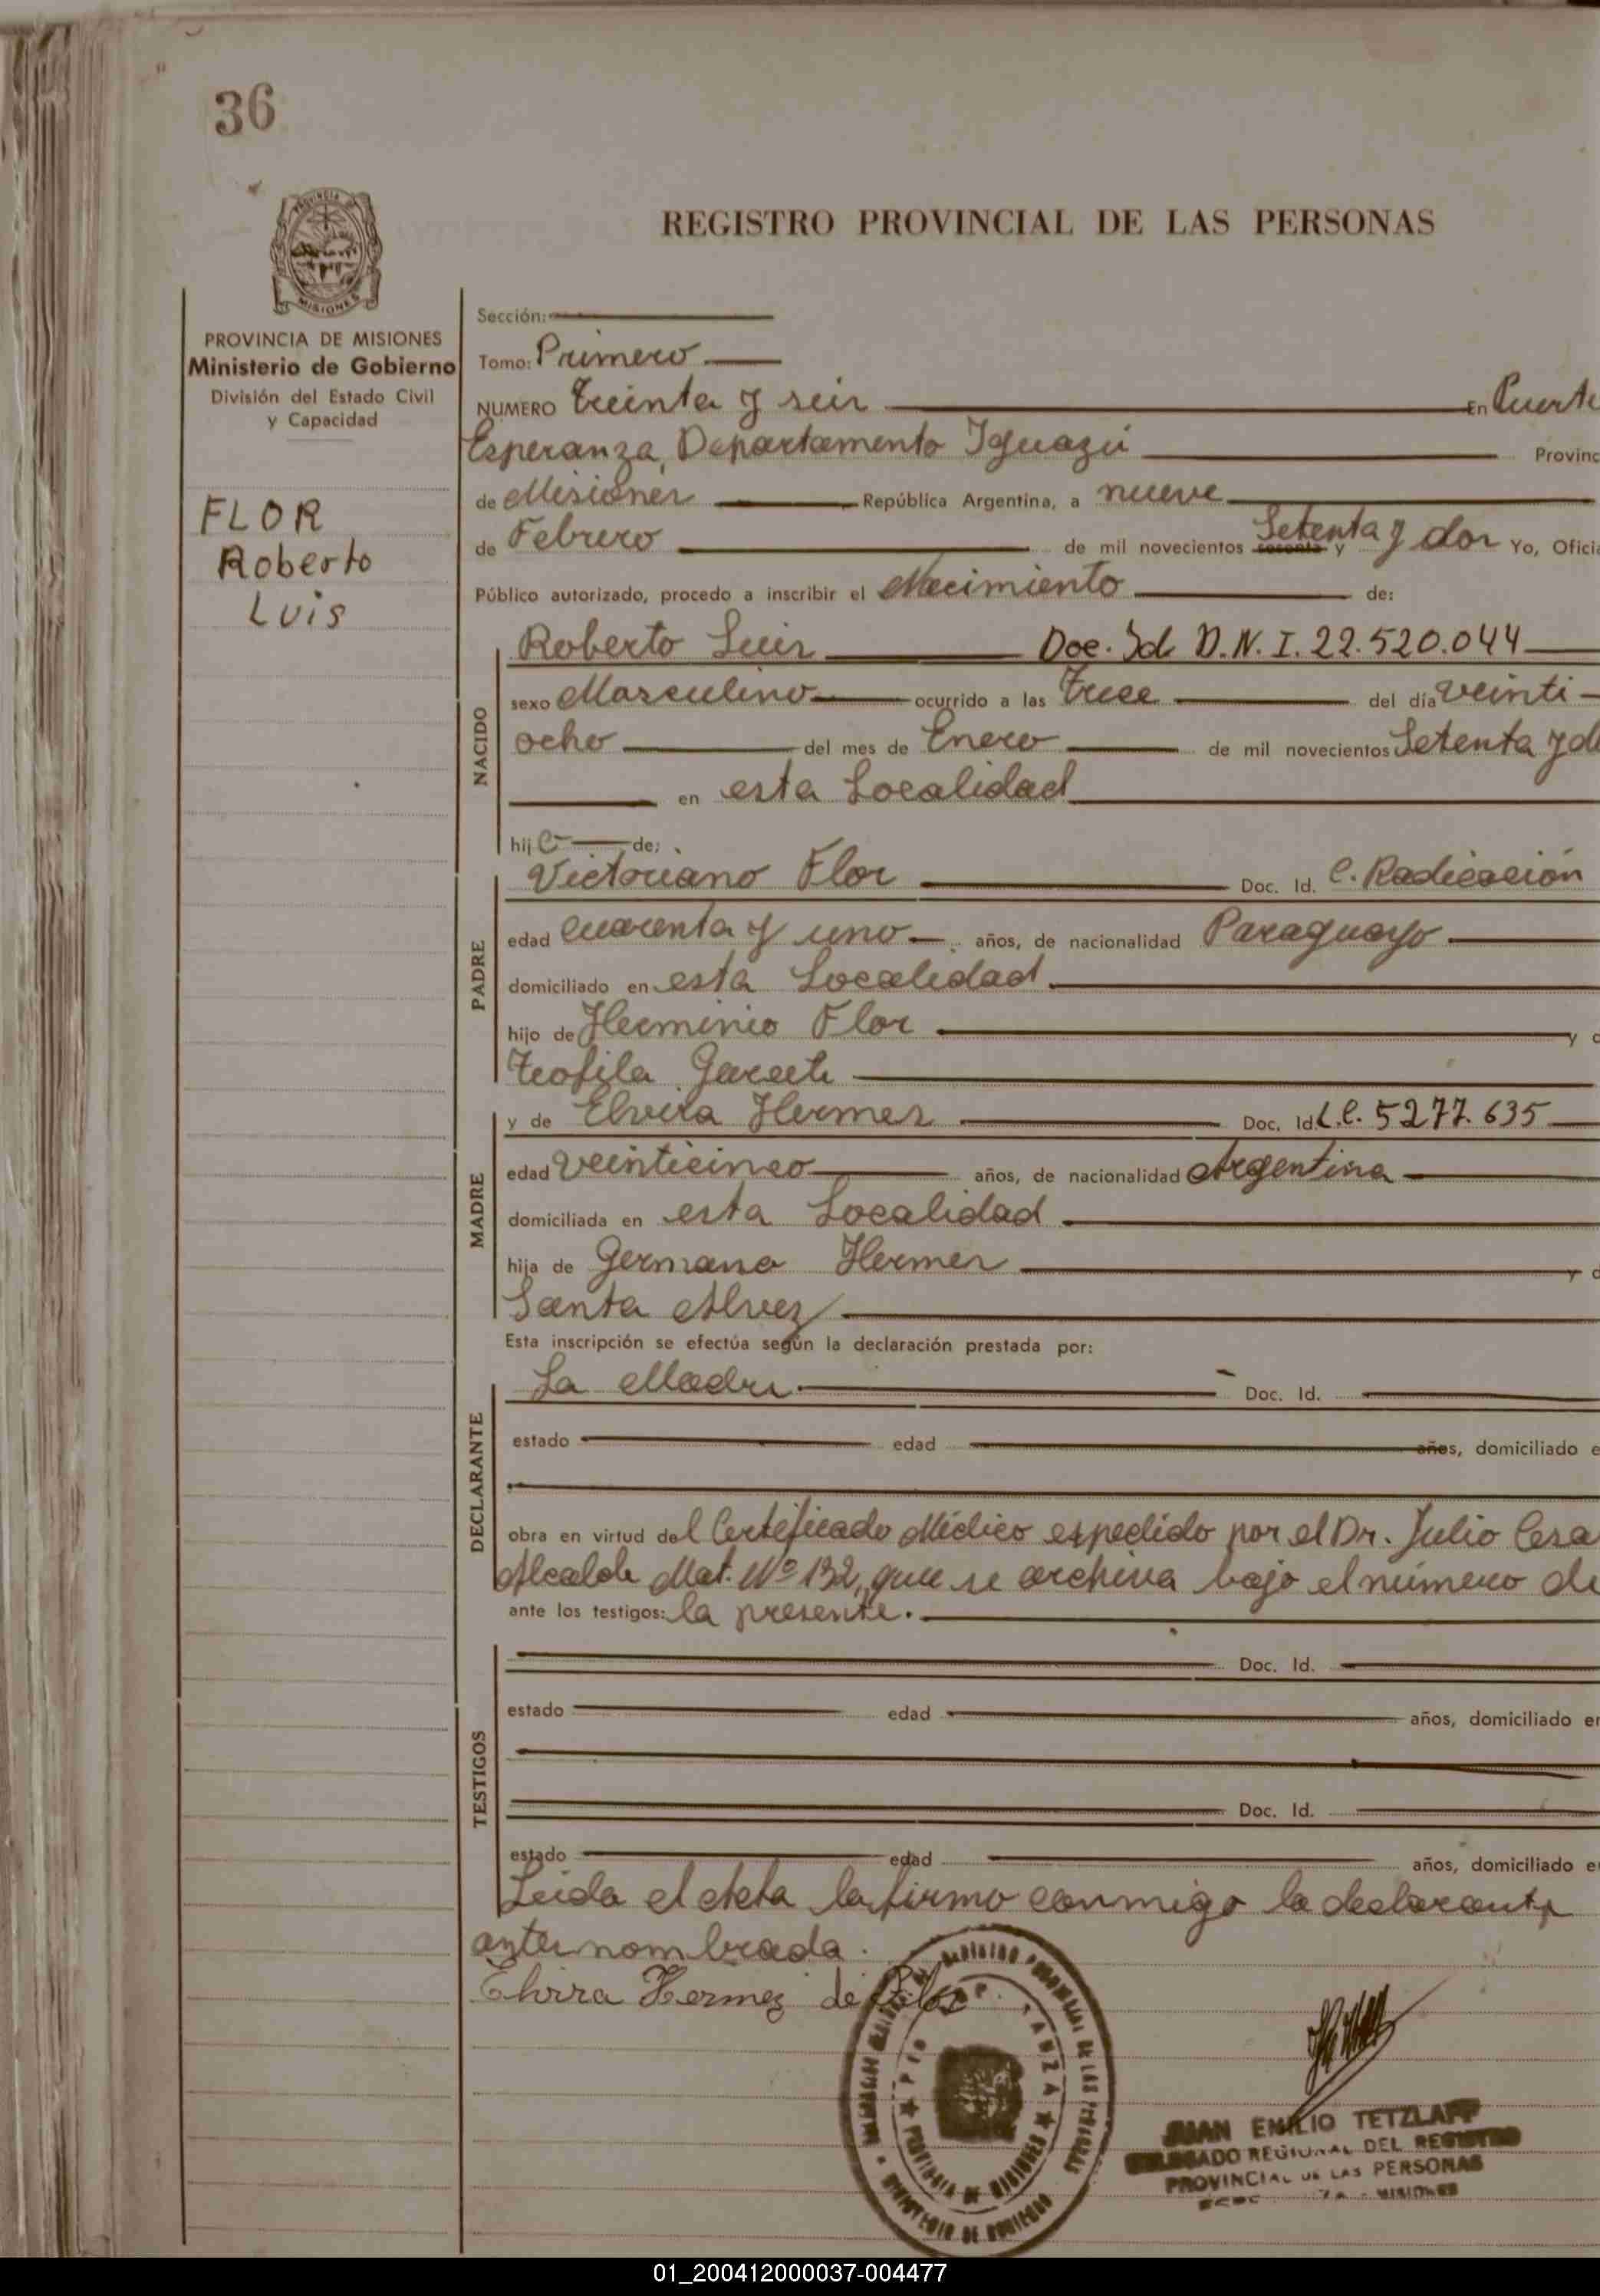 36
REGISTRO PROVINCIAL DE LAS PERSONAS
MISIONES
PROVINCIA DE MISIONES
Ministerio de Gobierno
División del Estado Civil
y Capacidad
FLOR
Roberto
Luis
Sección:
Tomo: Primero
NUMERO treinta y seis En Puerto
Esperanza, Departamento Iguazú Provinc
de Misiones República Argentina, a nueve
de Febrero de mil novecientos sesenta y Setenta y dos Yo, Ofici
Público autorizado, procedo a inscribir el Nacimiento de:
NACIDO
Roberto Luis Doc. Id. D.N.I. 22.520.044
sexo Masculino ocurrido a las trece del día veinti
ocho del mes de Enero de mil novecientos Setenta y do
en esta Localidad
hijo de:
PADRE
Victoriano Flor Doc. Id. C. Radicación
edad cuarenta y uno años, de nacionalidad Paraguayo
domiciliado en esta Localidad
hijo de Herminio Flor y d
Teofila
MADRE
y de Elvira Hermes Doc. Id. L.C. 5277.635
edad veinticinco años, de nacionalidad Argentina
domiciliada en esta Localidad
hija de Germano Hermes y d
Santa Alvez
Esta inscripción se efectúa según la declaración prestada por:
DECLARANTE
La Madre Doc. Id.
estado edad años, domiciliado e
obra en virtud del Certificado Médico expedido por el Dr. Julio Cesa
Alcalde Mat. Nº 132, que se archiva bajo el número de
ante los testigos: la presente.
TESTIGOS
Doc. Id.
estado edad años, domiciliado en
Doc. Id.
estado edad años, domiciliado en
Leida el Acta la firmo conmigo la declarante
antes nombrada.
Elvira Hermez de Flor
PROVINCIA DE MISIONES
MINISTERIO DE GOBIERNO
JUAN EMILIO TETZLAFF
DELEGADO REGIONAL DEL REGISTRO
PROVINCIAL DE LAS PERSONAS
MISIONES
01_200412000037-004477